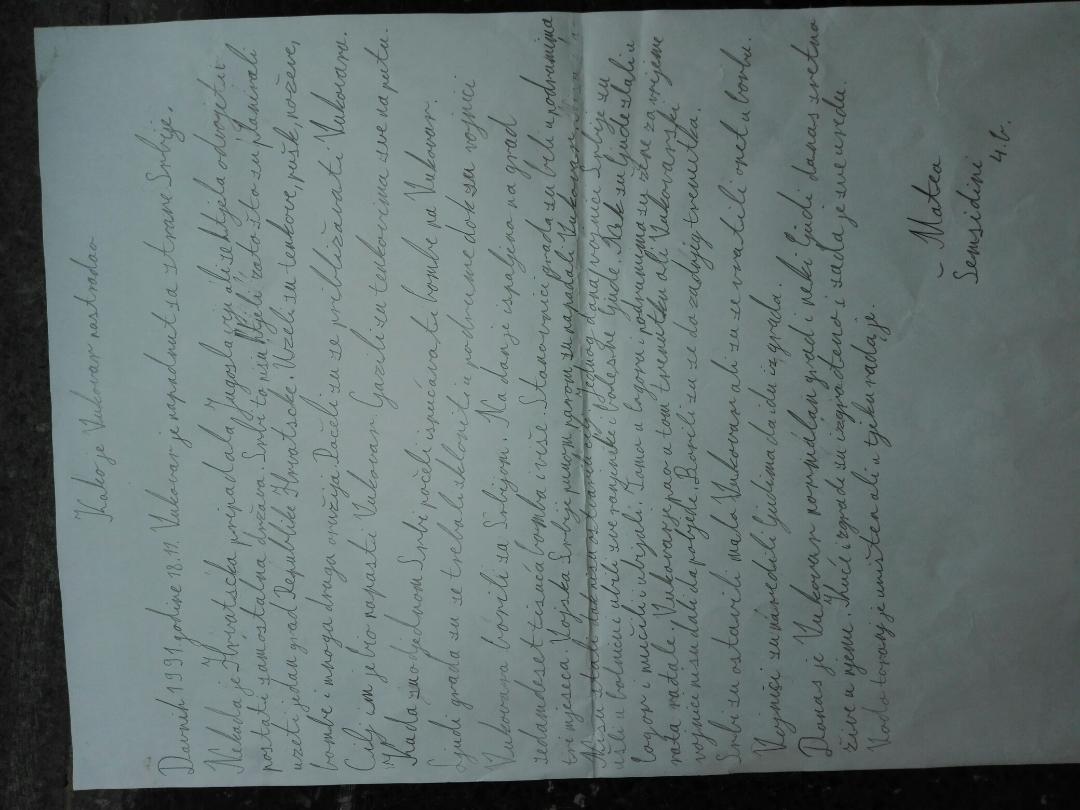 Kako je Vukovar nastradao
Davnih 1991. godine 18.11. Vukovar je napadnut sa strane Srbije.
Nekada je Hrvatska pripadala Jugoslaviji ali je htjela odvojiti
postati samostalna država. Srbi to nisu htjeli zato što su planirali
uzeti jedan grad Republike Hrvatske. Uzeli su tenkove, puške, noževe,
bombe i mnoga druga oružja. Počeli su se približavati Vukovaru.
Cilj im je bio napasti Vukovar. Gazili su tenkovima sve na putu.
Kada su odjednom Srbi počeli ispućavati bombe pa Vukovar.
Ljudi grada su se trebali skloniti u podrume dok su vojnici
Vukovara borili sa Srbijom. Na dan je ispaljino na grad
sedamdeset tisuća bomba i više. Stanovnici grada su bili u podrumima
tri mjeseca. Vojska Srbije punom parom su napadali Vukovar
Nisu stali tak nisu Jednog dana vojnici Srbije su
ušli u bolnicu ubili sve ranjenike i bolesne ljude. Neke su ljude slali u
logor i mučili i ubijali. Tamo u logoru i podrumima su žene za vrijeme
rata rađale. Vukovar je pao u tom trenutku ali Vukovarski
vojnici nisu dali da pobjede. Borili su se do zadnjeg trenutka.
Srbi su ostavili mala Vukovar ali su se vratili opet u borbu.
Vojnici su naredili ljudima da idu iz grada.
Danas je Vukovar normalan grad i neki ljudi danas sretno
žive u njemu. Kuće i zgrade su izgrađeno i sada je sve u redu.
Vodo toranj je uništen ali u tijeku rada je.
Matea
Šemsidini
4.b.